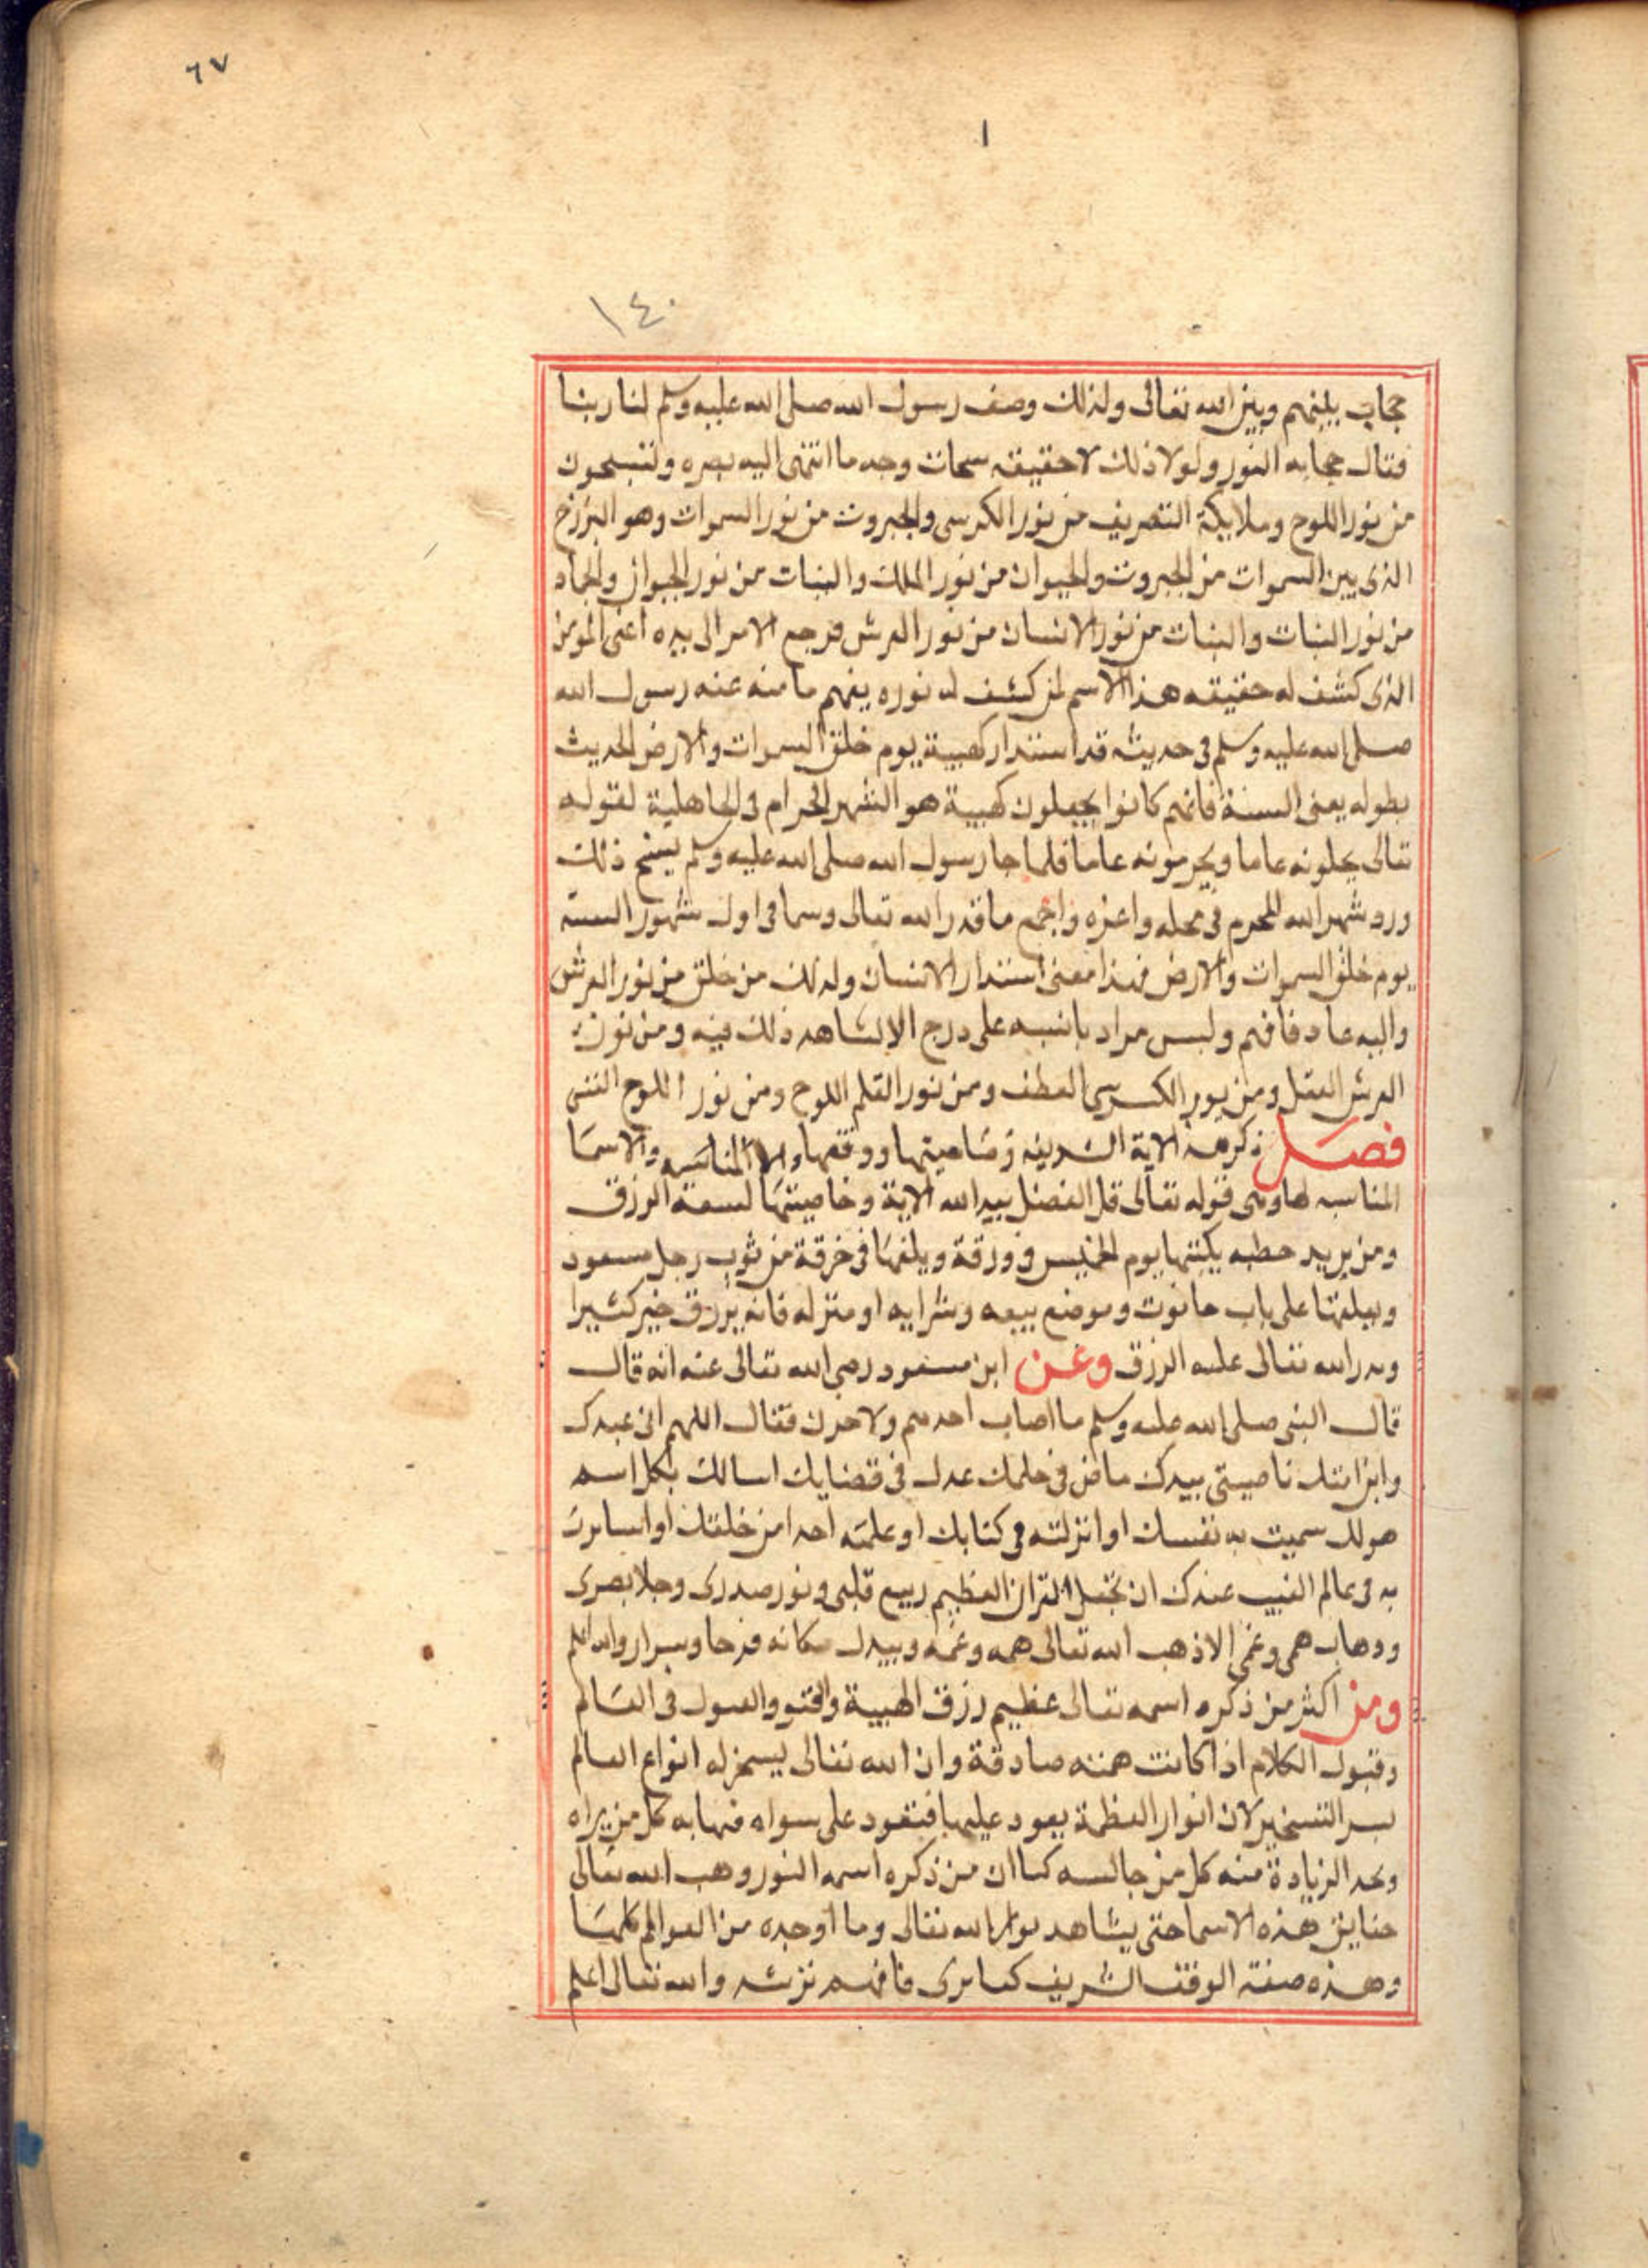 ٦٧
١
١٤٠
حجاب بينهم وبين الله تعالى ولذلك وصف رسول الله صلى الله عليه وسلم لنا ربنا
فقال حجابه النور ولولا ذلك لاحقيقه سبحات وجه ما انتهى اليه بصره ولتسبحون
من نور اللوح وملايكة التصريف من نور الكرسى والجبروت من نور السموات وهو البرزخ
الذى بين السموات من الجبروت والحيوان من نور الملك والنبات من نور الحيوان والجماد
من نور النبات والنبات من نور الانسان من نور العرش فرجع الامر الى بيده اعنى المومن
الذى كشف له حقيقه هذا الاسم لمن كشف له نوره يفهم ما منه عنه رسول الله
صلى الله عليه وسلم فى حديثه قد استدار كهيية يوم خلق السموات والارض الحديث
بطوله يعنى السنة فانهم كانوا يجعلون كهيية هو الشهر الحرام فى الجاهلية لقوله
تعالى يحلونه عاما ويحرمونه عاما فلما جا رسول الله صلى الله عليه وسلم بنسخ ذلك
ورد شهر الله المحرم فى محله واعزه واجمع ما قدر الله تعالى وسما فى اول شهور السنة
يوم خلق السموات والارض فهذا معنى استدار الانسان ولذلك من خلق من نور العرش
واليه عاد فافهم وليس مراد بانبه على درج الا لشاهد ذلك فيه ومن نور
العرش العقل ومن نور الكرسى العطف ومن نور القلم اللوح ومن نور اللوح النفس
فصل ذكر هذه الاية الشريفه وخاصيتها ووفقها والا المناسبه والاسما
المناسبه لها وهى قوله تعالى قل الفضل بيد الله الاية وخاصيتها لسعة الرزق
ومن يريد خطبه يكتبها يوم الخميس فى ورقة ويلفها فى خرقة من ثوب رجل مسعود
ويعلقها على باب حانوت وموضع بيعه وشرايه او منزله فانه يرزق خير كثيرا
ويدر الله تعالى عليه الرزق وعن ابن مسعود رضى الله تعالى عنه انه قال
قال النبى صلى الله عليه وسلم ما اصاب احد هم ولا حزن فقال اللهم انى عبدك
وابن امتك ناصيتى بيدك ماض فى حلمك عدل فى قضايك اسالك بكل اسم
هو لك سميت به نفسك او انزلته فى كتابك او علمته احدا من خلقك او استاثرت
به فى عالم الغيب عندك ان تجعل القران العظيم ربيع قلبى ونور صدرى وجلا بصرى
وذهاب همى وغمى الا ذهب الله تعالى همه وغمه ويبدل مكانه فرحا وسرارا والله اعلم
ومن اكثر من ذكره اسمه تعالى عظيم رزق الهيبة والقبول فى العالم
وقبول الكلام اذا كانت همته صادقة وان الله تعالى يسخر له انواع العالم
بسر التسخير لان انوار العظمة يعود عليها فتعود على سواه فهابه كل من يراه
ويجد الزيادة منه كل من جالسه كما ان من ذكره اسمه النور وهب الله تعالى
حقايق هذه الاسما حتى يشاهد نوار الله تعالى وما اوجده من العوالم كلها
وهذه صفة الوفق الشريف كما ترى فافهم ترشد والله تعالى اعلم